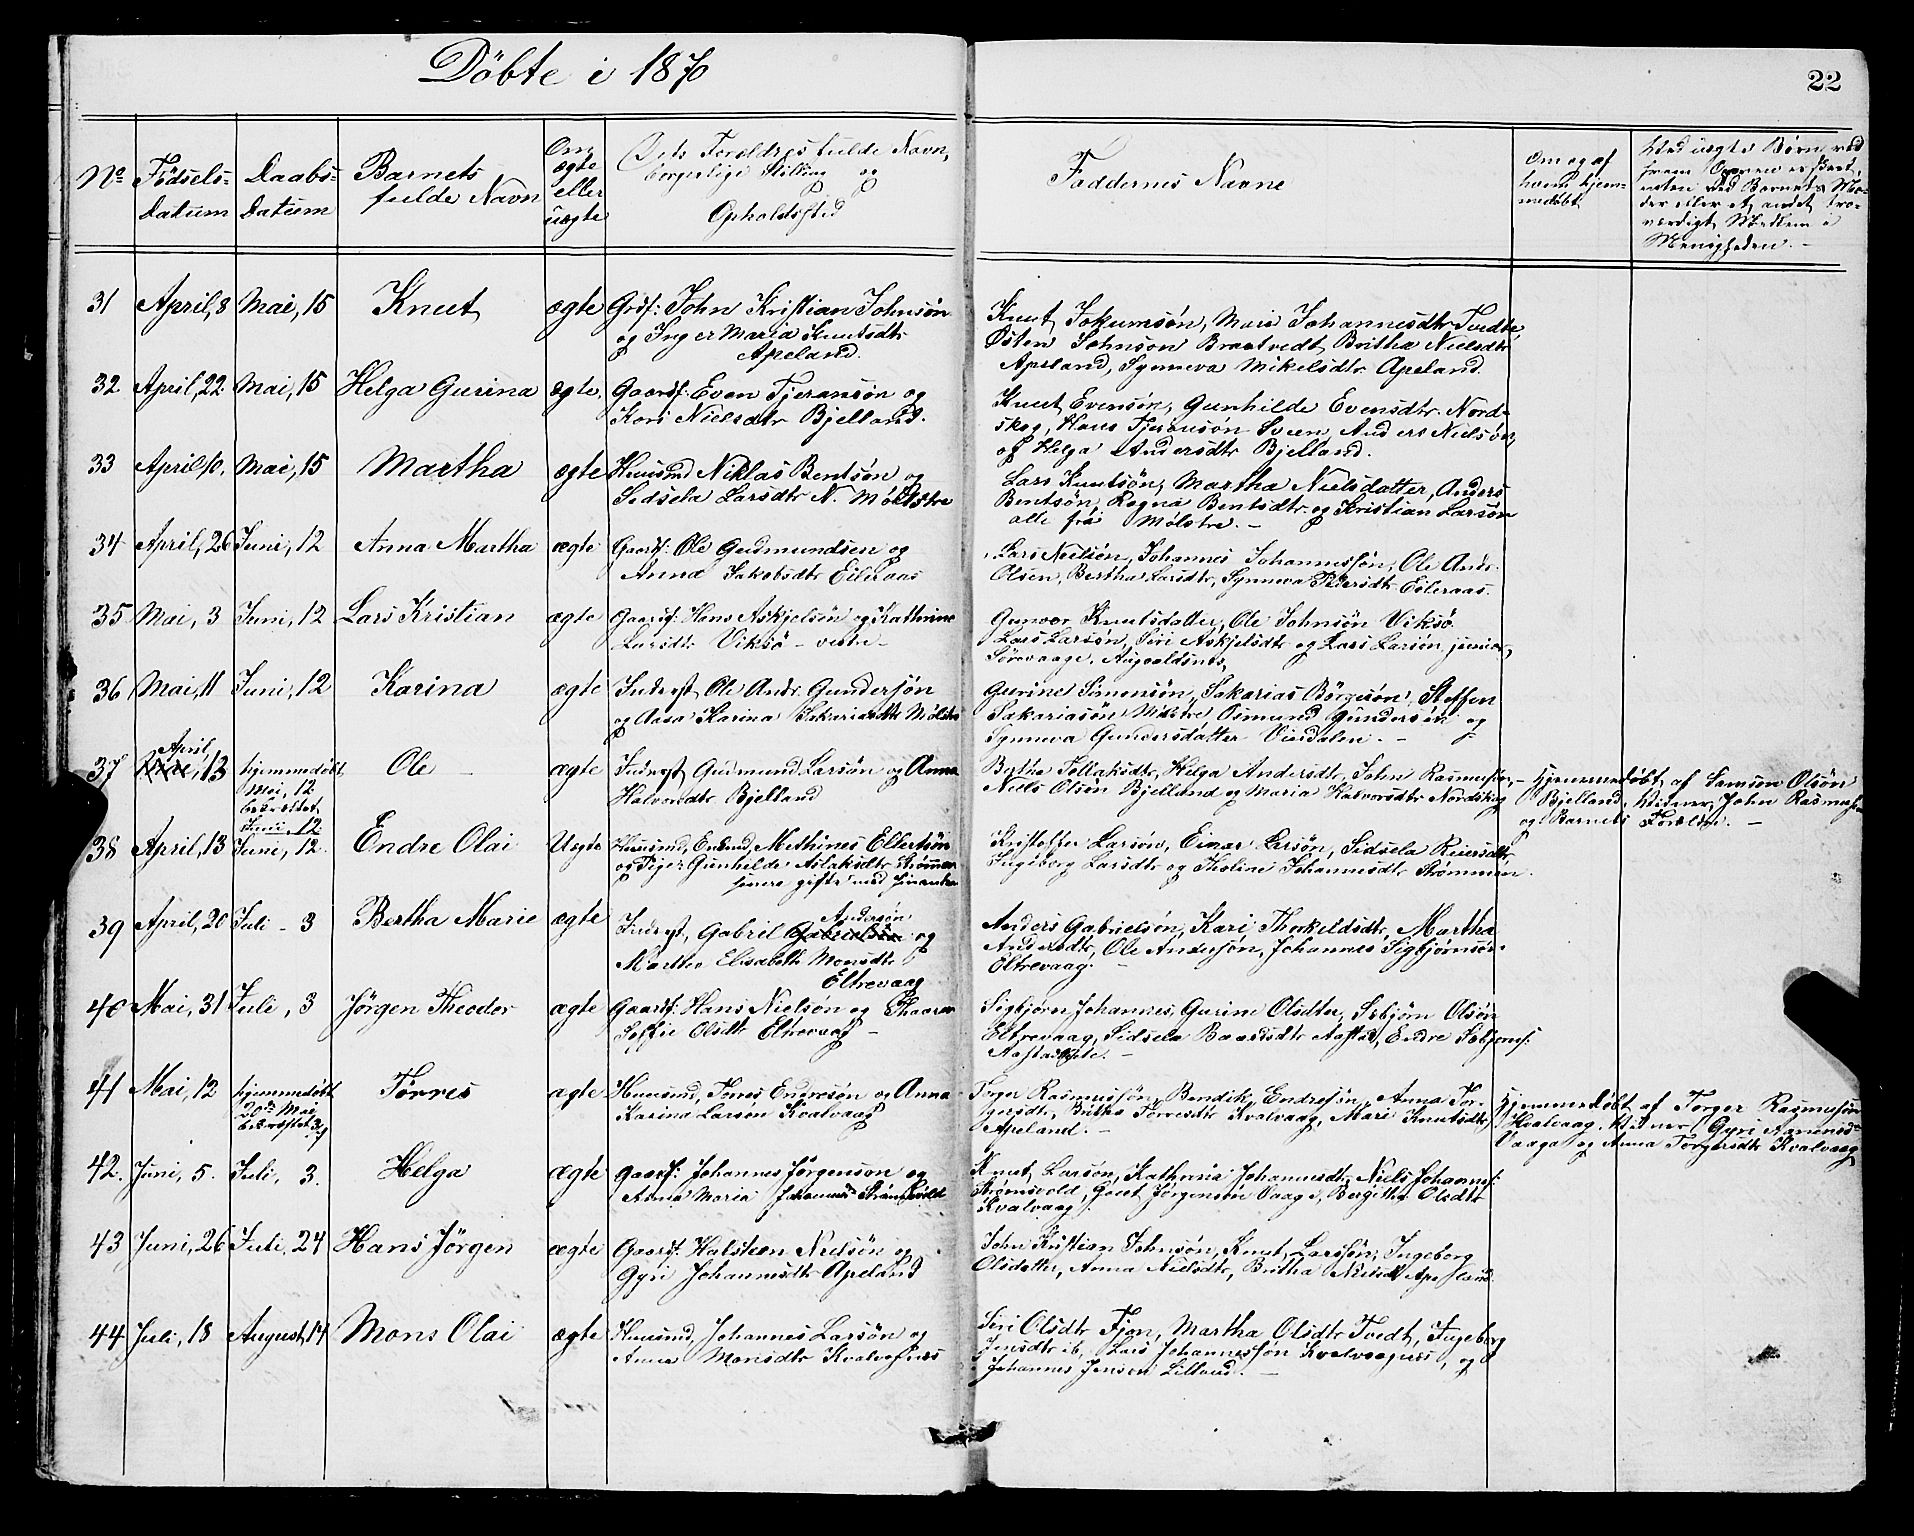 Döbte i 1870
22
No Födsels-Datum
Daabs-Datum
Barnets fulde Navn
Om ægte eller uægte
Dets Forældres fulde Navn, borgerlige Stilling og Opholdssted
Faddernes Navne
Om og af hvem hjemmedøbt
31 April, 8 Mai, 15 Knut ægte Grdf: John Kristian Johnsön
og Inger Maria Knutsdtr
Apeland.
Knut Jokumsön, Mari Johannesdtr
Østen Johnsön Brattvedt, Britha Nielsdtr
Apeland, Synneva Mikelsdtr Apeland.
32 April, 22 Mai, 15 Helga Gurina ægte. Gaardf: Even Tjeransön og
Kari Nielsdtr Bjelland.
Knut Evensön, Gunhilde Evensdtr. Nord-
skog, Hans Tjeransön Sveen, Anders Nielsön,
og Helga Andersdtr Bjelland.
33 April 10. Mai, 15 Martha ægte Huusmd Niklas Bentsön og
Sidsela Larsdtr N. Mölstre
Lars Knutsön, Martha Nielsdatter, Anders
Bentsön, Ragna Bentsdtr og Kristian Larsön
alle fra Mölstre. -
34 April, 26 Juni, 12 Anna Martha ægte Gaardf: Ole Gudmundsen og
Anna Jakobsdtr Eileraas
Lars Nielsön, Johannes Johannessön, Ole Andr.
Olsen, Bertha Larsdtr, Synneva Pedersdtr Eileraas.
35 Mai, 3 Juni, 12 Lars Kristian ægte Gaardf: Hans Askjelsön og Kathrine
Larsdtr Viksö - vestre -
Gunvor Knutsdatter, Ole Johnsön Viksö.
Lars Larsön, Siri Askjelsdtr og Lars Larsön junior,
Sörevaage, Augvaldsnes,
36 Mai, 11 Juni, 12 Karina ægte Inderst, Ole Andr. Gundersön
og Aasa Karina Sakariasdtr Mölstre
Gurine Simonsön, Sakarias Börgesön, Steffen
Sakariasön Mölstre, Osmund Gundersön og
Synneva Gundersdatter Viesdalen. -
37 April, 13 hjemmedöbt Mai, 12 bekræftet Juni, 12 Ole - ægte Inderst, Gudmund Larsön og Anna
Halvorsdtr Bjelland
Bertha Tollaksdtr, Helga Andersdtr, John Rasmusson,
Niels Olsön Bjelland og Maria Halvorsdtr Nordskog
Hjemmedøbt af Samson Olsön
Bjelland, Vidner, John Rasmussen
og Barnets Forældre. -
38 April, 13 Juni, 12. Endre Olai Uegte Huusmd, Enkemd, Mathines Ellertsön
og Pige Gunhilde Aslaksdtr Strömmen
senere gifte med hinanden
Kristoffer Larsön, Einar Larsön, Sidsela Reiersdtr,
Ingeborg Larsdtr og Tholine Johannesdtr Strömmen.
39 April, 20 Juli - 3 Bertha Marie ægte Inderst, Gabriel Andersön og
Martha Elisabeth Monsdtr
Eltrevaag
Anders Gabrielsön, Kari Thorkildsdtr, Martha
Andersdtr, Ole Andersön, Johannes Sigbjörnsön
Eltrevaag. -
40 Mai, 31 Juli, 3 Jörgen Theodor ægte Gaardf: Hans Nielsön og
Soffie Olsdtr Eltrevaag -
Sigbjörn Johannes, Gurine Olsdtr, Asbjörn Olsön
Eltrevaag, Sidsela Baardsdtr Aafstad, Endre
41 Mai, 12 hjemmedöbt 20de Mai bekræftet 3/7 Törres ægte Huusmd, Jones Endresön og Anna
Karina Larsön Kvalvaag
Torger Rasmussön, Bendik Endresön, Anna Tor-
gersdtr, Britha Torresdtr Kvalvaag, Mari Knutsdtr
Apeland. -
Hjemmedøbt af Torger Rasmusön
Kvalvaag. Vidner, Gyri
Vaaga og Anna Torgersdtr Kvalvaag
42. Juni, 5. Juli, 3. Helga ægte Gaardf: Johannes Jörgenson og
Anna Maria Johannes- Strömsvold
Knut Larsön, Katharia Johannesdtr, Niels Johannes:
Strömsvold, Gaut Jörgensen Vaage, Bergitha Olsdtr
Kvalvaag.
43 Juni, 26 Juli, 24 Hans Jörgen ægte Gaardf. Halsteen Nielsön og
Gyri Johannesdtr Apeland
John Kristian Johnsön, Knut Larssön, Ingeborg
Olsdatter, Anna Nielsdtr, Britha Nielsdt Apeland.
44 Juli, 18 August, 14 Mons Olai ægte Huusmd, Johannes Larsön og
Anna Monsdtr
Siri Olsdtr Fjon, Martha Olsdtr Tvedt, Ingeborg
Jensdtr ib, Lars Johannessön Kvalvaagnes, og
Johannes Jensen Lillesund. -